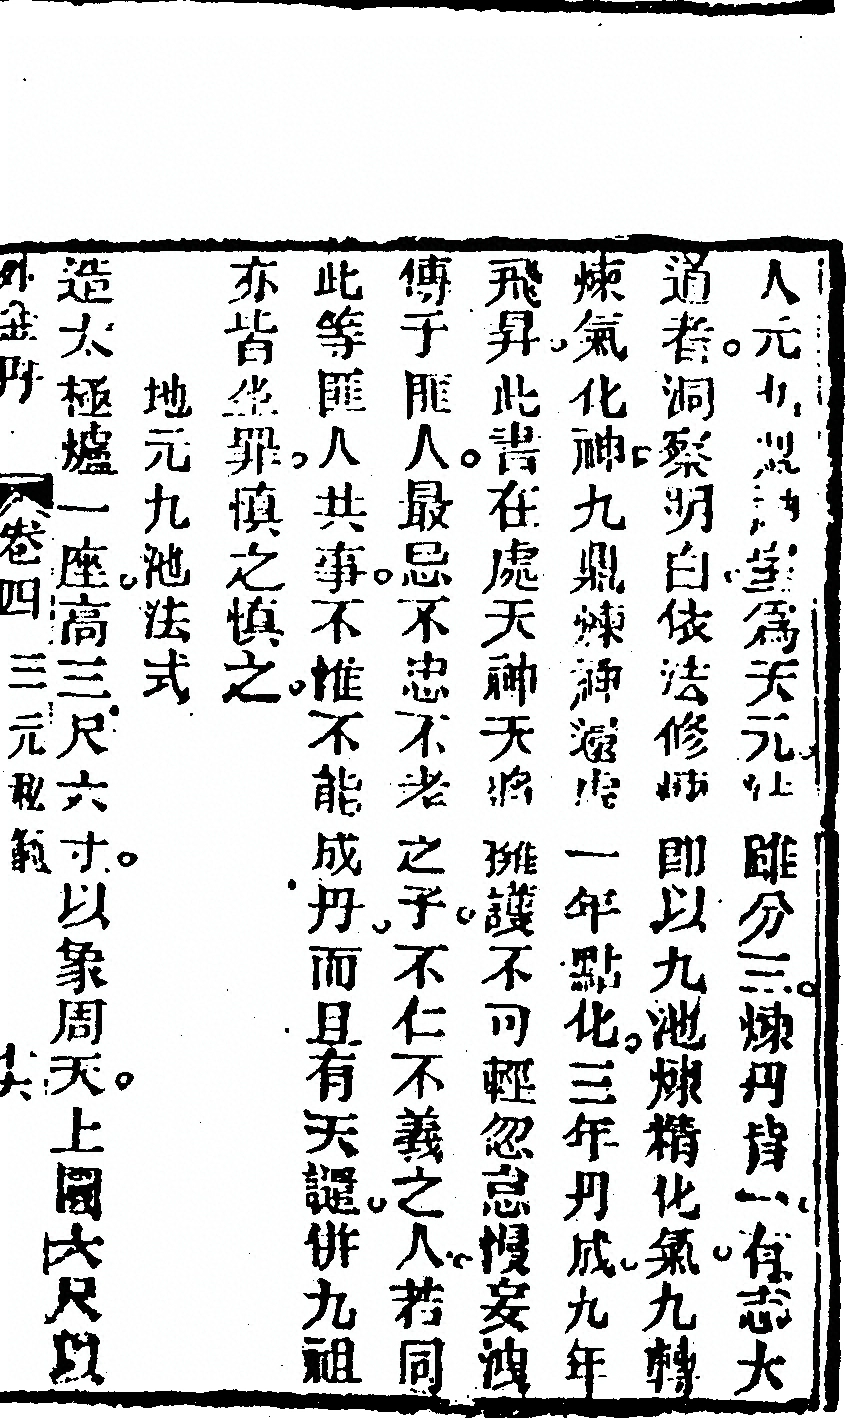 人元九鼎爲天元仙雖分三煉丹皆一有志大
道者。洞察明白。依法修煉卽以九池煉精化氣。九轉
煉氣化神。九鼎煉神還虛一年點化。三年丹成。九年
飛昇。此書在處天神天將擁護不可輕忽怠慢妄洩
傳于匪人。最忌不忠不孝之子。不仁不義之人。若同
此等匪人共事。不惟不能成丹。而且有天譴。併九祖
亦皆坐罪。慎之慎之。
地元九池法式
造太極爐一座。高三尺六寸。以象周天。上圓六尺以
外金丹 卷四 三元秘範 十六